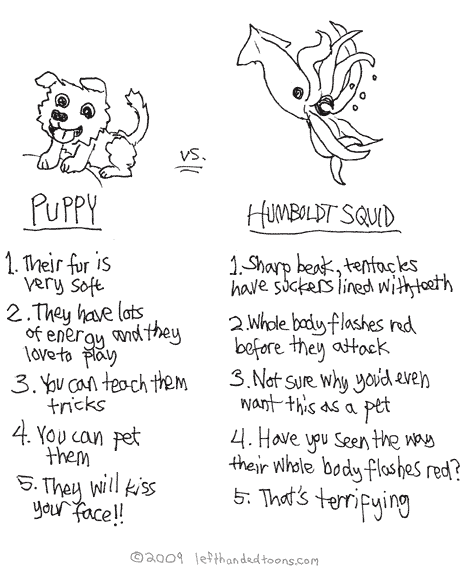 vs.
PUPPY
1. Their fur is
very soft
2. They have lots
of energy and they
love to play
3. You can teach them
tricks
4. You can pet
them
5. They will kiss
your face!!
HUMBOLDT SQUID
1. Sharp beak, tentacles
have suckers lined with teeth
2. Whole body flashes red
before they attack
3. Not sure why you'd even
want this as a pet
4. Have you seen the way
their whole body flashes red?
5. That's terrifying
©2009 lefthandedtoons.com